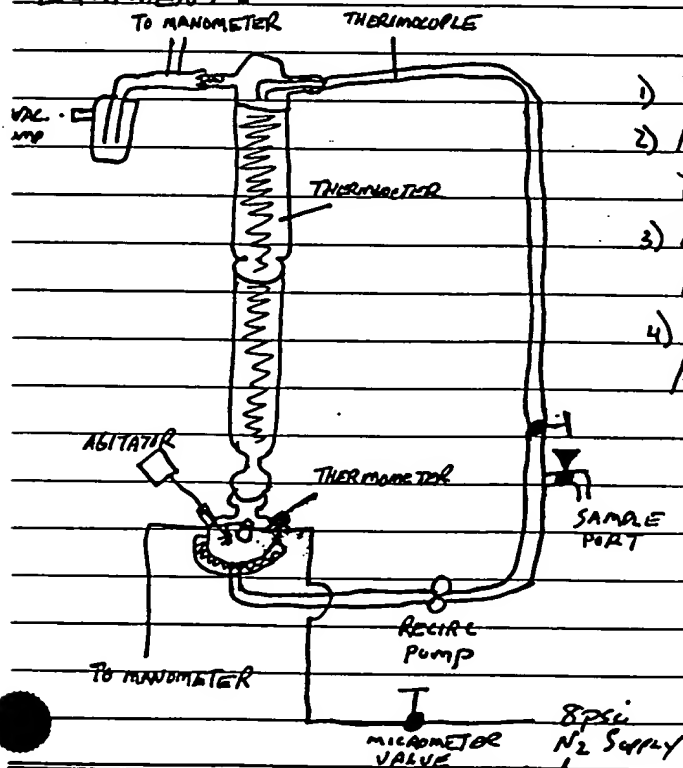 TO MANOMETER
THERMOCOUPLE
VAC.
1)
2)
THERMOMETER
3)
4)
AGITATOR
THERMOMETER
SAMPLE
PORT
RECIRC
PUMP
TO MANOMETER
MICROMETER
VALVE
8psi
N2 SUPPLY